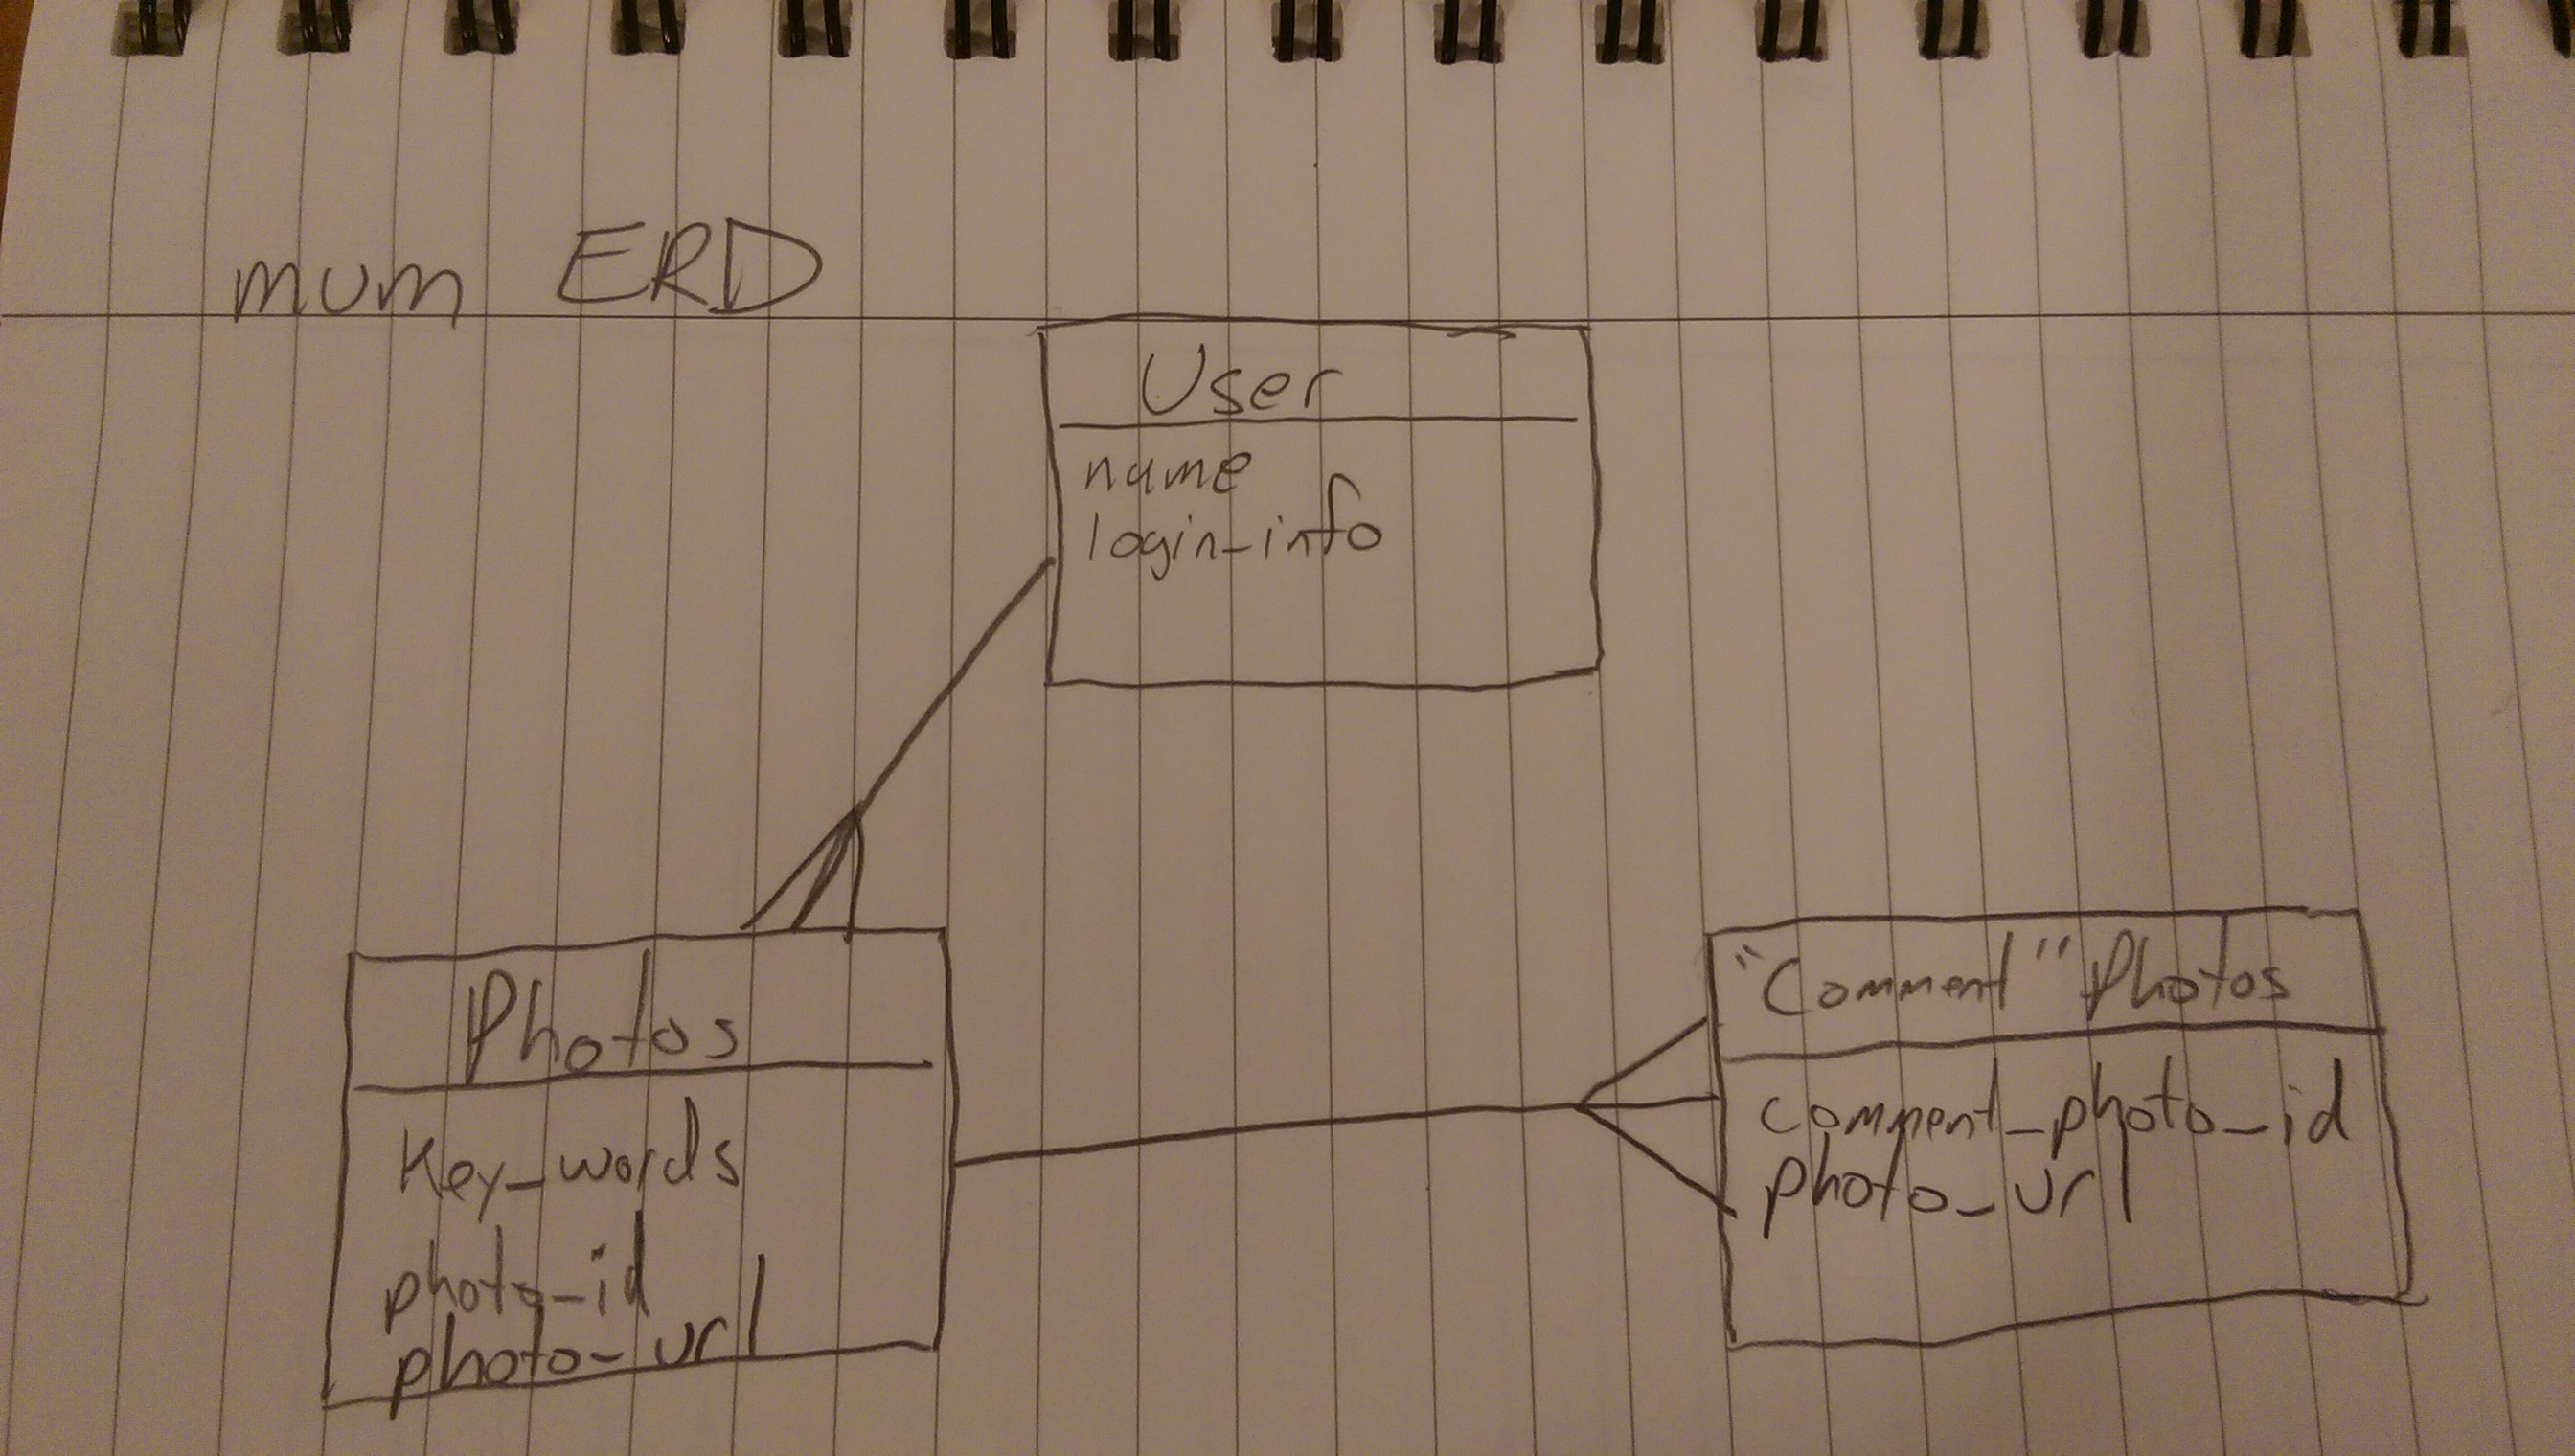 mum ERD
User
name
login_info
Photos
Key_words
photo_id
photo_url
"Comment" Photos
comment_photo_id
photo_url